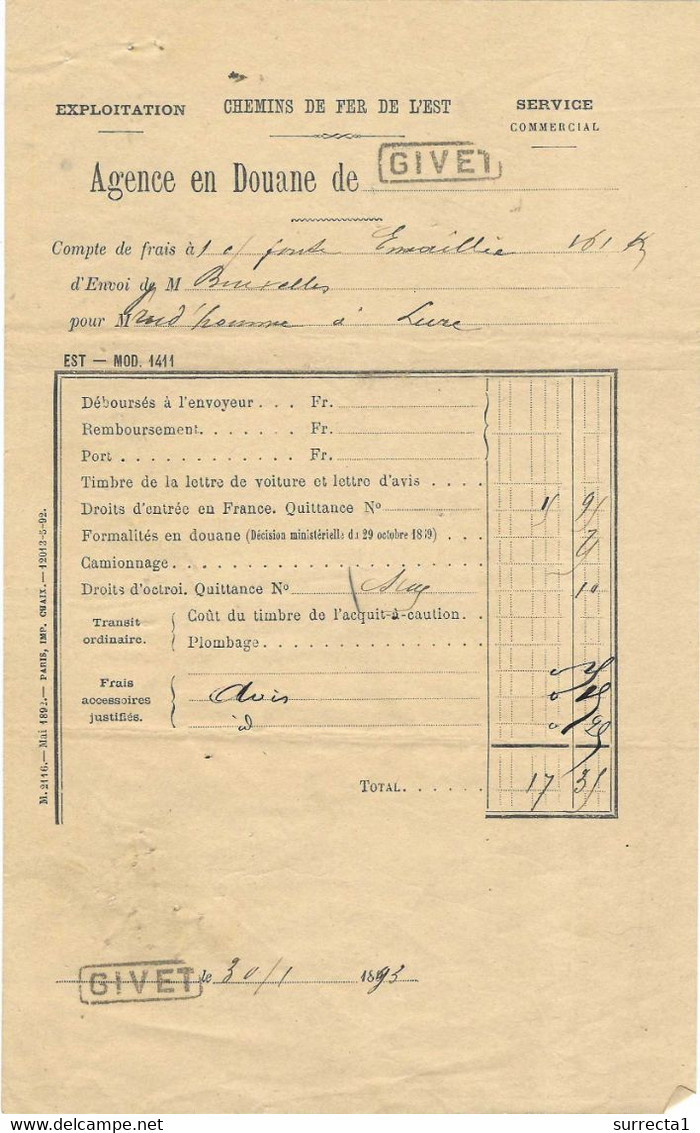 EXPLOITATION
CHEMINS DE FER DE L'EST
SERVICE
COMMERCIAL
Agence en Douane de GIVET
Compte de frais à 1 c/ fonte Emaillée 161 K
d'Envoi de M Bruxelles
pour M à Lure
EST — MOD. 1411
Déboursés à l'envoyeur . . . Fr.
Remboursement. . . . . . . Fr.
Port . . . . . . . . . . . . Fr.
Timbre de la lettre de voiture et lettre d'avis . . . .
Droits d'entrée en France. Quittance No
Formalités en douane (Décision ministérielle du 29 octobre 1849) . . .
Camionnage
Droits d'octroi. Quittance No 10
Transit ordinaire. Coût du timbre de l'acquit-à-caution. . .
Plombage
Frais accessoires justifiés. Avis
TOTAL. . . . . . 17
M. 2116.— Mai 1892.— PARIS, IMP. CHAIX.—12013-5-92.
GIVET le 30/1 1893
surrecta1